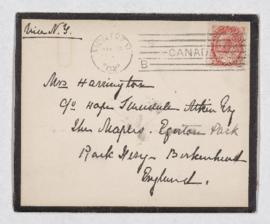 Via N.Y.
CANADA
B
Mrs Harrington
c/o Hope Tinsdale Atkin Esq
The Maples. Egerton Park
Rock Ferry - Birkenhead
England.